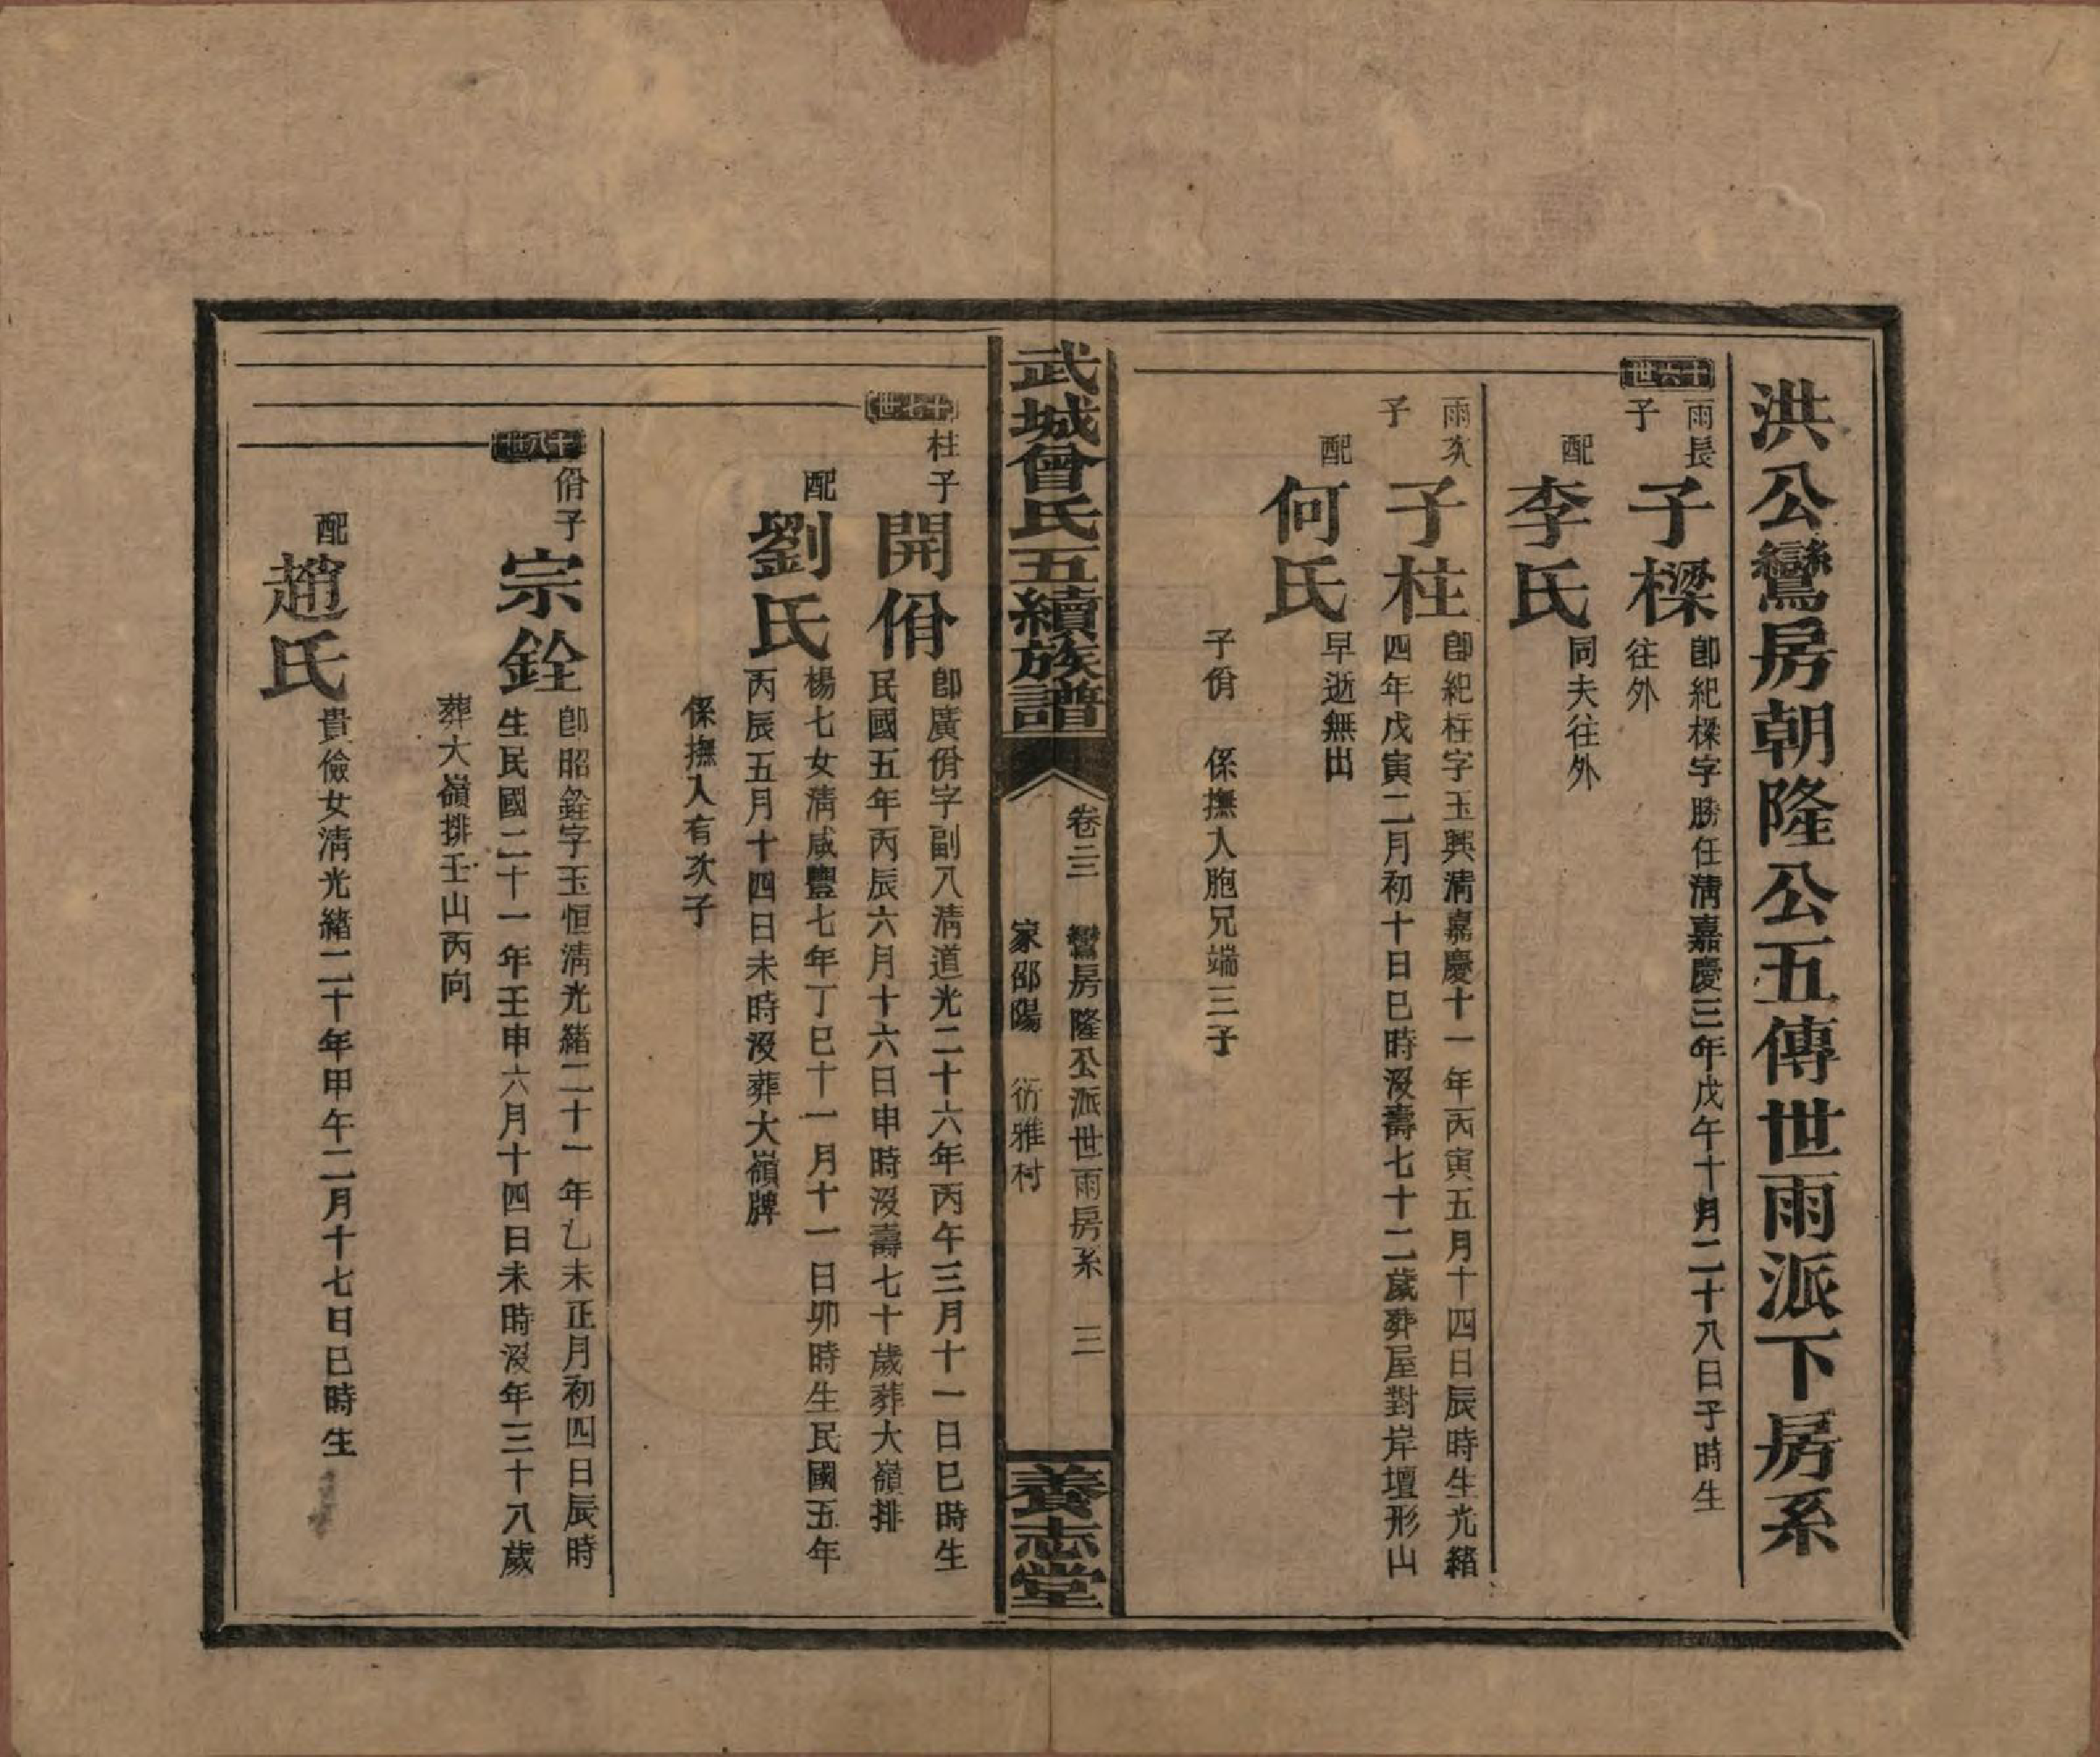 洪公鸞房朝隆公五傳世雨派下房系
十六世
雨長子
子樑
卽紀樑字勝任淸嘉慶三年戊午十月二十八日子時生
往外
配
李氏
同夫往外
雨次子
子柱
卽紀柱字玉興淸嘉慶十一年丙寅五月十四日辰時生光緖
四年戊寅二月初十日巳時沒壽七十二歲葬屋對岸壇形山
配
何氏
早逝無出
子佾 係撫入胞兄端三子
武城曾氏五續族譜
卷三 鸞房隆公派世雨房系 三
家邵陽 衍雅村
養志堂
十七世
柱子
開佾
卽廣佾字副八淸道光二十六年丙午三月十一日巳時生
民國五年丙辰六月十六日申時沒壽七十歲葬大嶺排
配
劉氏
楊七女淸咸豐七年丁巳十一月十一日卯時生民國五年
丙辰五月十四日未時沒葬大嶺牌
係撫入有次子
十八世
佾子
宗銓
卽昭銓字玉恒淸光緖二十一年乙未正月初四日辰時
生民國二十一年壬申六月十四日未時沒年三十八歲
葬大嶺排壬山丙向
配
趙氏
貴儉女淸光緖二十年甲午二月十七日巳時生